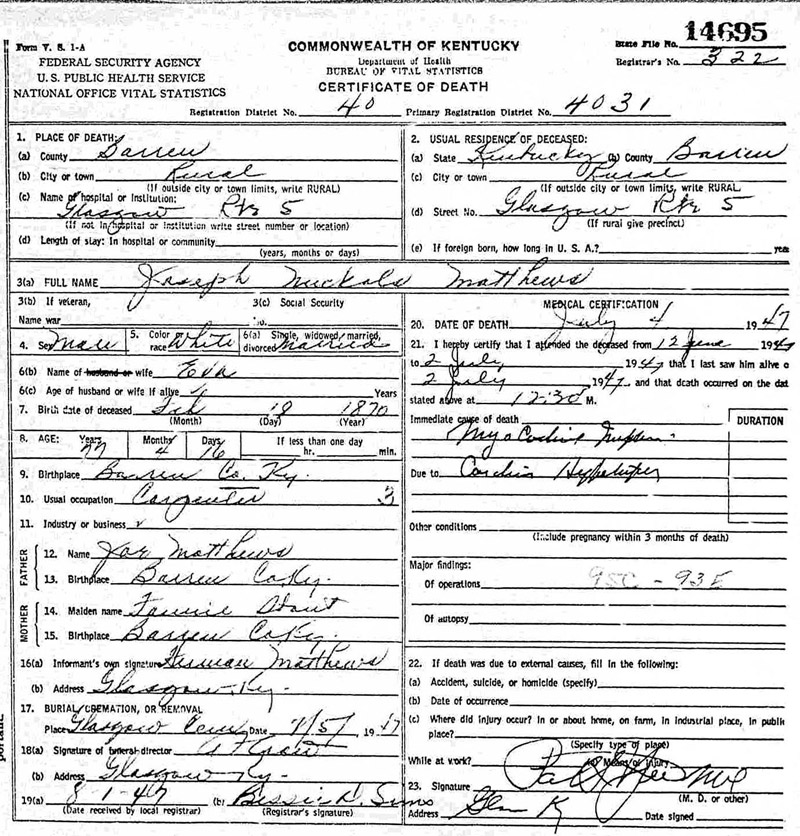 14695
Form V. S. 1-A
COMMONWEALTH OF KENTUCKY
State File No.
FEDERAL SECURITY AGENCY
Department of Health
Registrar's No. 322
U. S. PUBLIC HEALTH SERVICE
BUREAU OF VITAL STATISTICS
NATIONAL OFFICE VITAL STATISTICS
CERTIFICATE OF DEATH
Registration District No. 40 Primary Registration District No. 4031
1. PLACE OF DEATH:
(a) County Barren
(b) City or town Rural
(If outside city or town limits, write RURAL)
(c) Name of hospital or Institution:
Glasgow Rt 5
(If not in hospital or institution write street number or location)
(d) Length of stay: In hospital or community
(years, months or days)
2. USUAL RESIDENCE OF DECEASED:
(a) State Kentucky (b) County Barren
(c) City or town Rural
(If outside city or town limits, write RURAL
(d) Street No. Glasgow Rt 5
(If rural give precinct)
(e) If foreign born, how long in U. S. A.? year
3(a) FULL NAME Joseph Nuckols Matthews
3(b) If veteran, 3(c) Social Security
Name war No.
4. Sex Male 5. Color or race White 6(a) Single, widowed, married, divorced Married
6(b) Name of husband or wife Eva
6(c) Age of husband or wife if alive Years
7. Birth date of deceased Feb 18 1870
(Month) (Day) (Year)
8. AGE: Years Months Days If less than one day
77 4 16 hr. min.
9. Birthplace Barren Co. Ky.
10. Usual occupation Carpenter 3
11. Industry or business
FATHER
12. Name Matthews
13. Birthplace Barren Co Ky.
MOTHER
14. Maiden name Fannie
15. Birthplace Barren Co Ky.
16(a) Informant's own signature Herman Matthews
(b) Address Glasgow Ky.
17. BURIAL, CREMATION, OR REMOVAL
Place Glasgow Cem Date 7/5/ 1947
18(a) Signature of funeral director
(b) Address Glasgow Ky.
19(a) 8-1-47 (b) Bessie D. Sims
(Date received by local registrar) (Registrar's signature)
MEDICAL CERTIFICATION
20. DATE OF DEATH July 4 1947
21. I hereby certify that I attended the deceased from 12 June 1947
to 2 July 1947 that I last saw him alive o
2 July 1947 and that death occurred on the dat
stated above at 12:30 M.
Immediate cause of death DURATION
Due to
Other conditions
(Include pregnancy within 3 months of death)
Major findings:
Of operations 95C - 93E
Of autopsy
22. If death was due to external causes, fill in the following:
(a) Accident, suicide, or homicide (specify)
(b) Date of occurrence
(c) Where did injury occur? In or about home, on farm, in industrial place, in public
place?
(Specify type of place)
While at work? (e) Means of injury
23. Signature
(M. D. or other)
Address Date signed